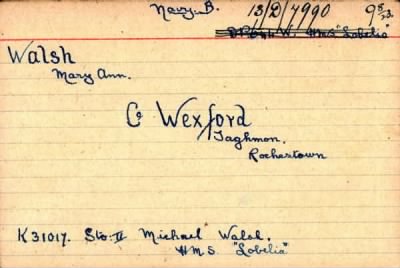 Navy. B. 13/D/7990
Walsh
Mary Ann.
Co Wexford
Taghmon.
Rochestown
K31017. Sto: II Michael Walsh.
HMS. "Lobelia"